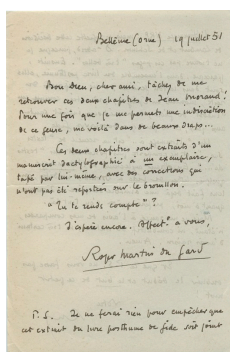 Bellême (Orne) 19 juillet 51
Bon Dieu, cher ami, tâchez de me
retrouver ces deux chapitres de Jean Morand !
Pour une fois que je me permets une indiscrétion
de ce genre, me voilà dans de beaux draps...
Ces deux chapitres sont extraits d'un
manuscrit dactylographié à un exemplaire,
tapé par lui-même, avec des corrections qui
n'ont pas été reportées sur le brouillon.
"Tu te rends compte" ?
J'espère encore. Affect.t à vous,
Roger Martin du Gard
P.S. Je ne ferai rien pour empêcher que
cet extrait du livre posthume de Gide soit joint